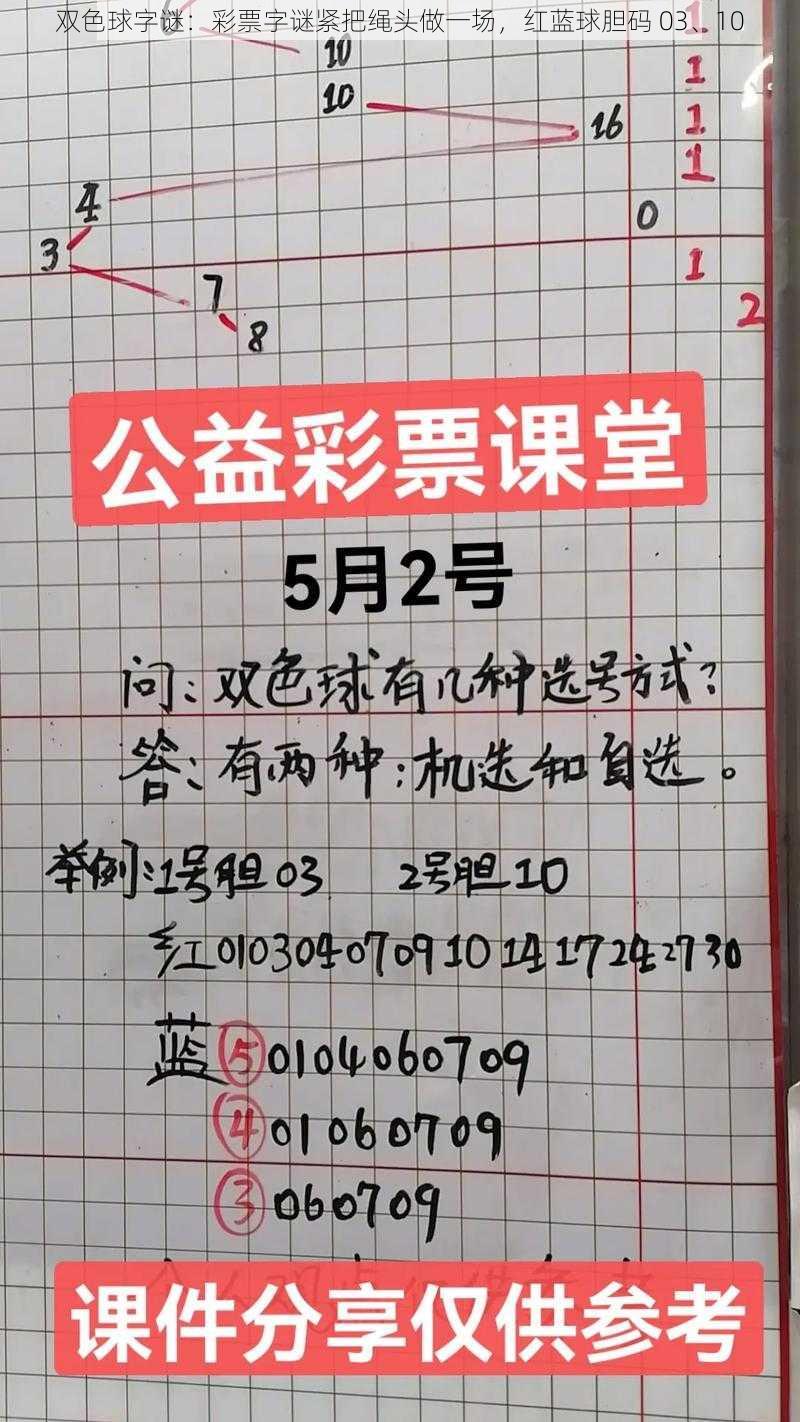 双色球字谜：彩票字谜紧把绳头做一场，红蓝球胆码 03、10
1
10
1
10
16
1
1
4
0
3
1
7
2
8
公益彩票课堂
5月2号
问：双色球有几种选号方式？
答：有两种：机选和自选。
举例：1号胆03 2号胆10
红0103040709101417242730
蓝⑤0104060709
④01060709
③060709
课件分享仅供参考